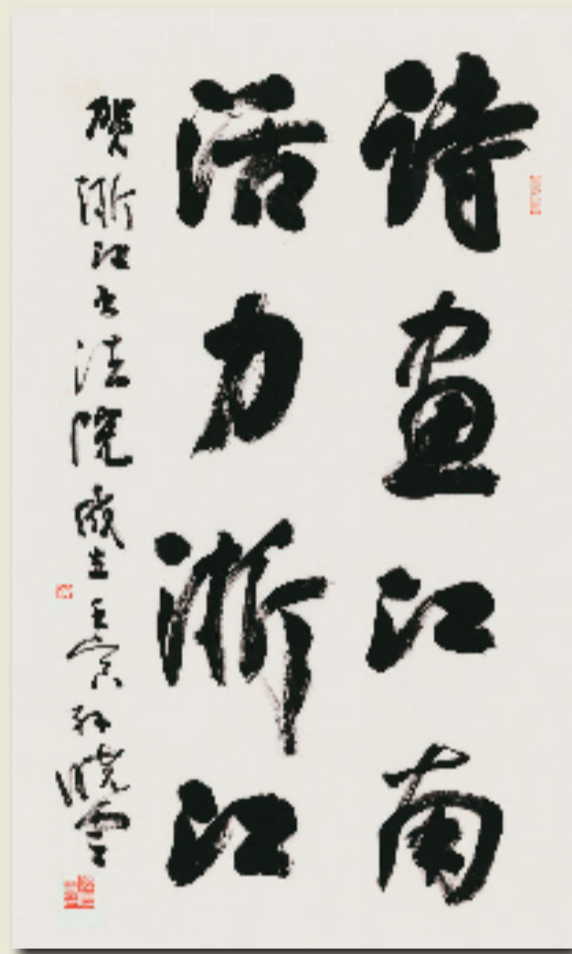 诗画江南
活力浙江
贺浙江书法院成立壬寅孙晓云